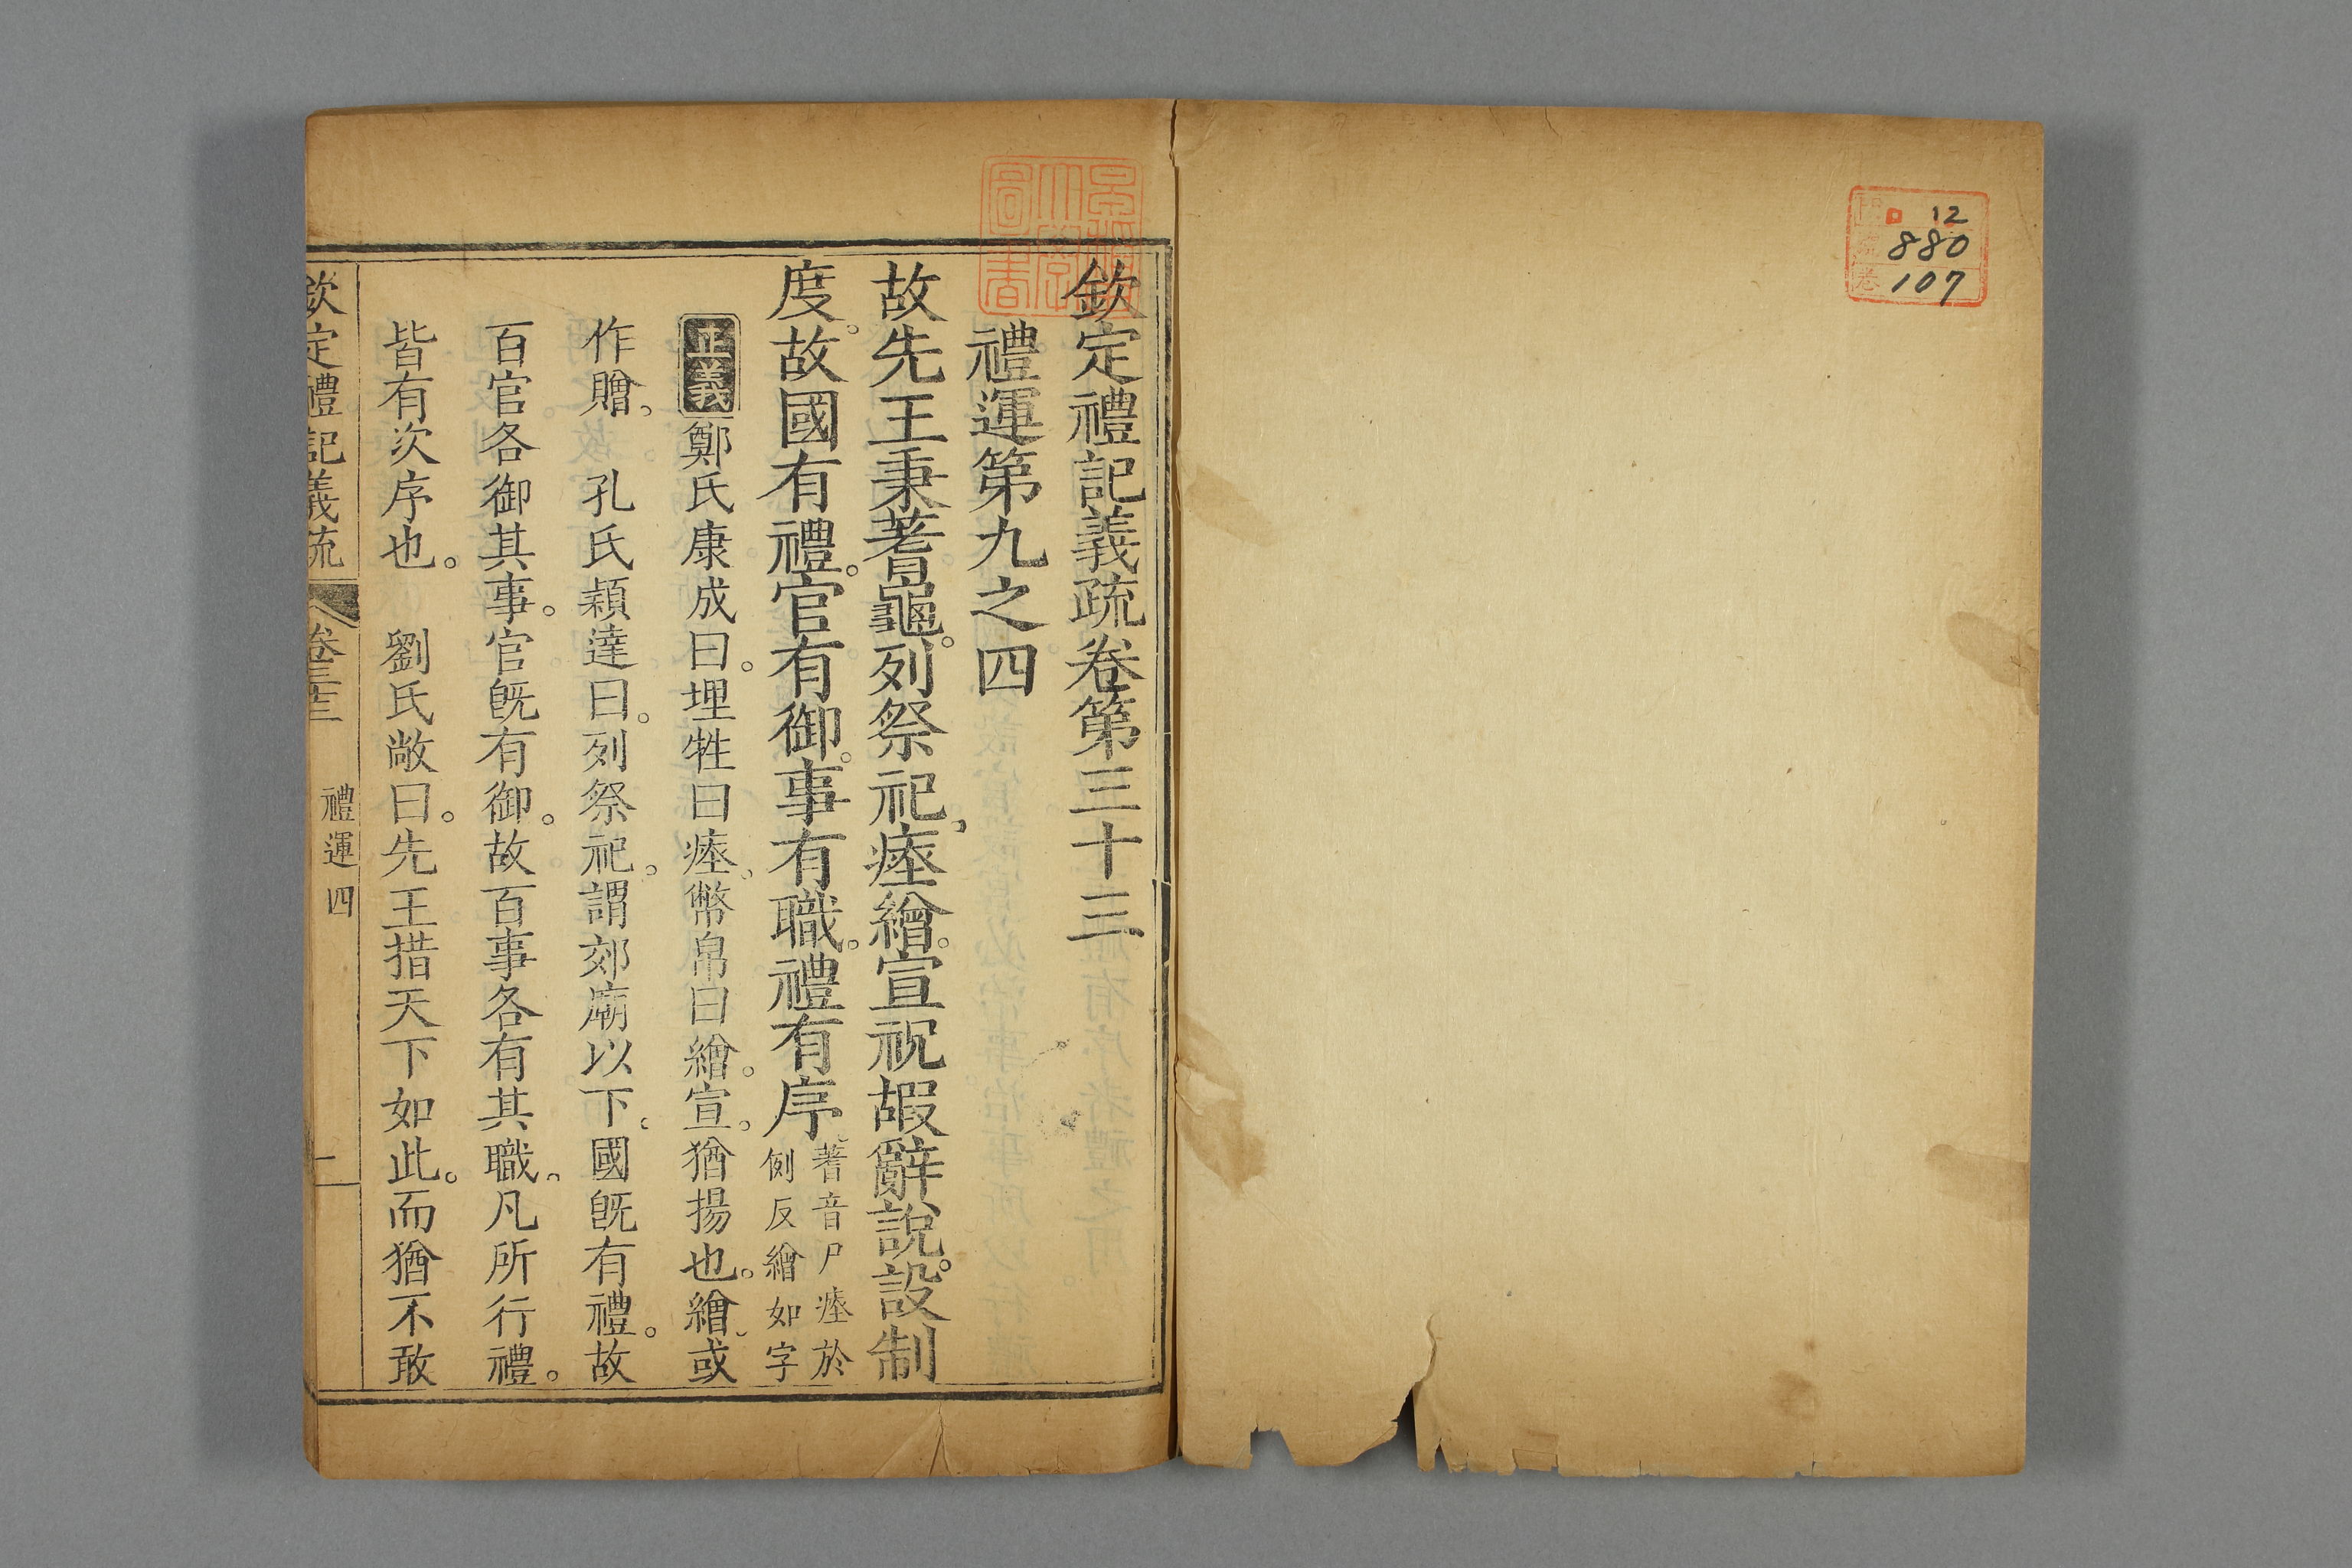 12
880
107
欽定禮記義疏卷第三十三
禮運第九之四
故先王秉蓍龜。列祭祀,瘞繒。宣祝嘏辭說。設制
度。故國有禮。官有御。事有職。禮有序。
蓍音尸瘞於
例反繒如字
正義鄭氏康成曰。埋牲曰瘞。幣帛曰繒。宣。猶揚也。繒、或
作贈。 孔氏穎達曰。列祭祀。謂郊廟以下。國旣有禮。故
百官各御其事。官旣有御。故百事各有其職。凡所行禮。
皆有次序也。 劉氏敞曰。先王措天下如此。而猶不敢
欽定禮記義疏 卷三十三 禮運四 一